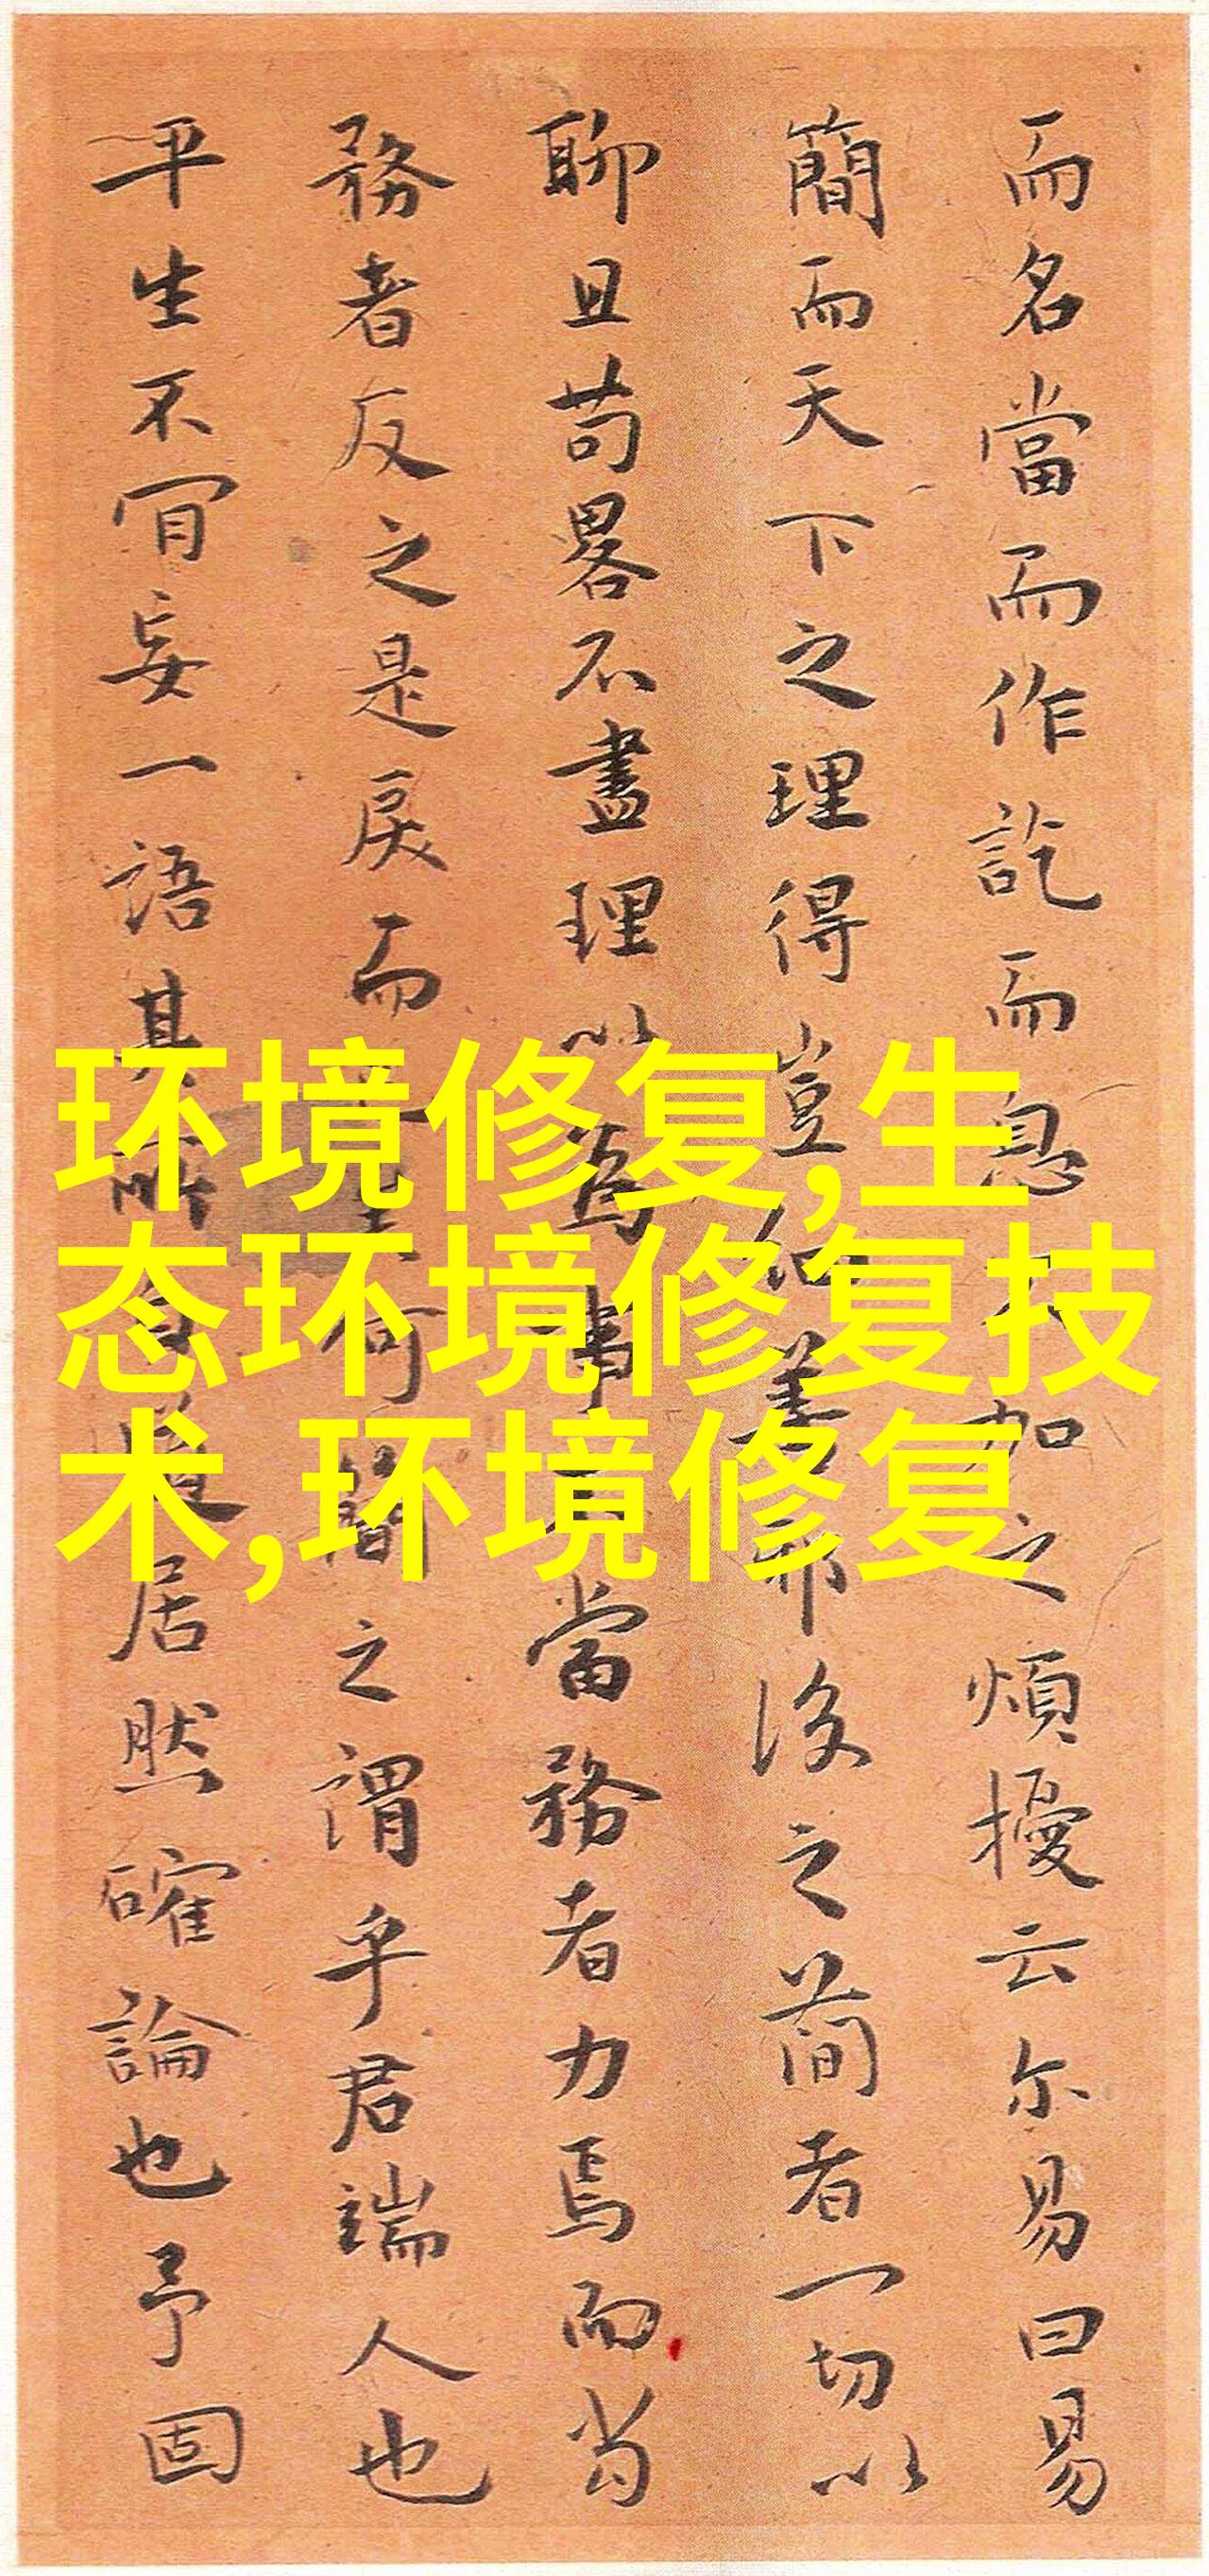 而名當而作訖而息不加之煩擾云尔易曰易
簡而天下之理得豈邪後之簡者一切以
聊且苟畧不盡理以為事當務者力焉而當
務者反之是戾而何簡之謂乎君端人也
平生不肯妄一語其所自道居然確論也予固
环境修复,生
态环境修复技
术,环境修复